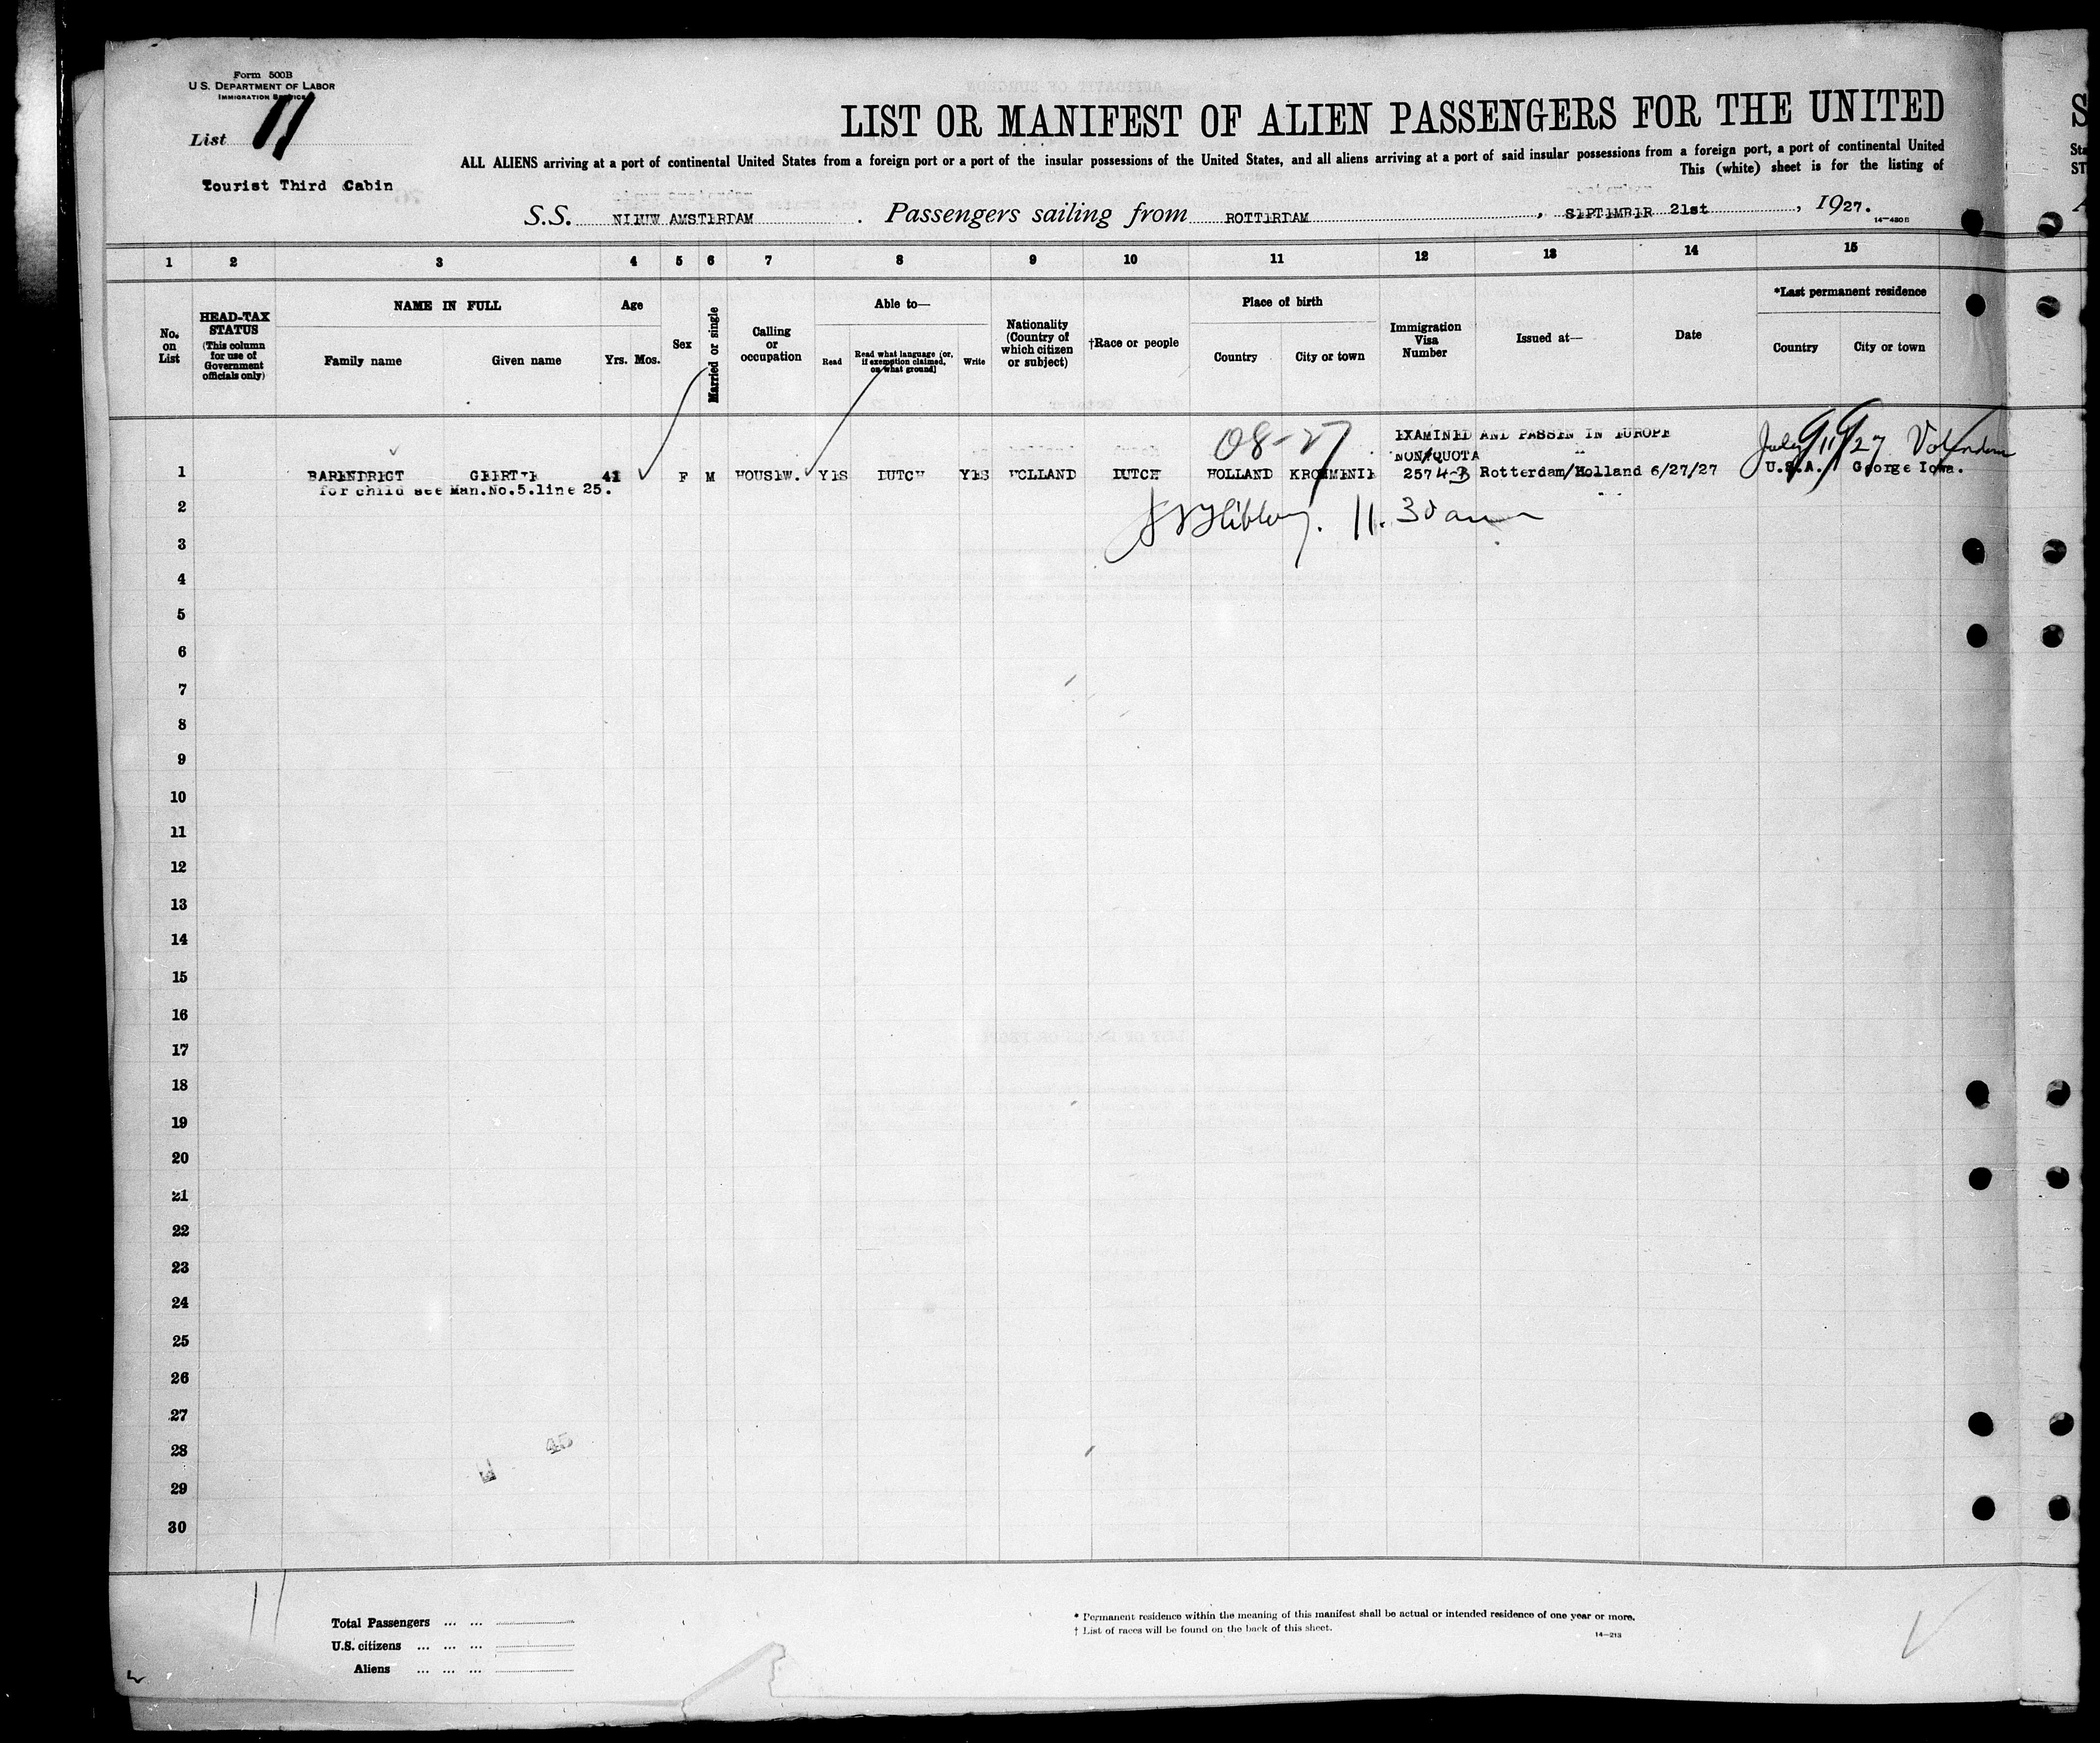 Form 500B
U.S. DEPARTMENT OF LABOR
IMMIGRATION SERVICE
List 11
LIST OR MANIFEST OF ALIEN PASSENGERS FOR THE UNITED
ALL ALIENS arriving at a port of continental United States from a foreign port or a port of the insular possessions of the United States, and all aliens arriving at a port of said insular possessions from a foreign port, a port of continental United
This (white) sheet is for the listing of
Tourist Third Cabin
S.S. NIEUW AMSTERDAM. Passengers sailing from ROTTERDAM, SEPTEMBER 21st, 1927.
14-430B
1 2 3 4 5 6 7 8 9 10 11 12 13 14 15
No. on List
HEAD-TAX STATUS (This column for use of Government officials only)
NAME IN FULL
Family name Given name
Age
Yrs. Mos.
Sex
Married or single
Calling or occupation
Able to—
Read Read what language (or, if exemption claimed, on what ground) Write
Nationality (Country of which citizen or subject)
†Race or people
Place of birth
Country City or town
Immigration Visa Number
Issued at—
Date
*Last permanent residence
Country City or town
08-27 EXAMINED AND PASSED IN EUROPE July 9/27 Volendam
NON/QUOTA
1 BARENDREGT GEERTJE 41 F M HOUSEW. YES DUTCH YES HOLLAND DUTCH HOLLAND KROMMENIE 2574-B Rotterdam/Holland 6/27/27 U.S.A. George Iowa.
for child see Man.No.5.line 25.
2 11.30 am
3
4
5
6
7
8
9
10
11
12
13
14
15
16
17
18
19
20
21
22
23
24
25
26
27
28
29
30
45
11
Total Passengers ... ...
U.S. citizens ... ... ...
Aliens ... ... ...
* Permanent residence within the meaning of this manifest shall be actual or intended residence of one year or more.
† List of races will be found on the back of this sheet.
14-213